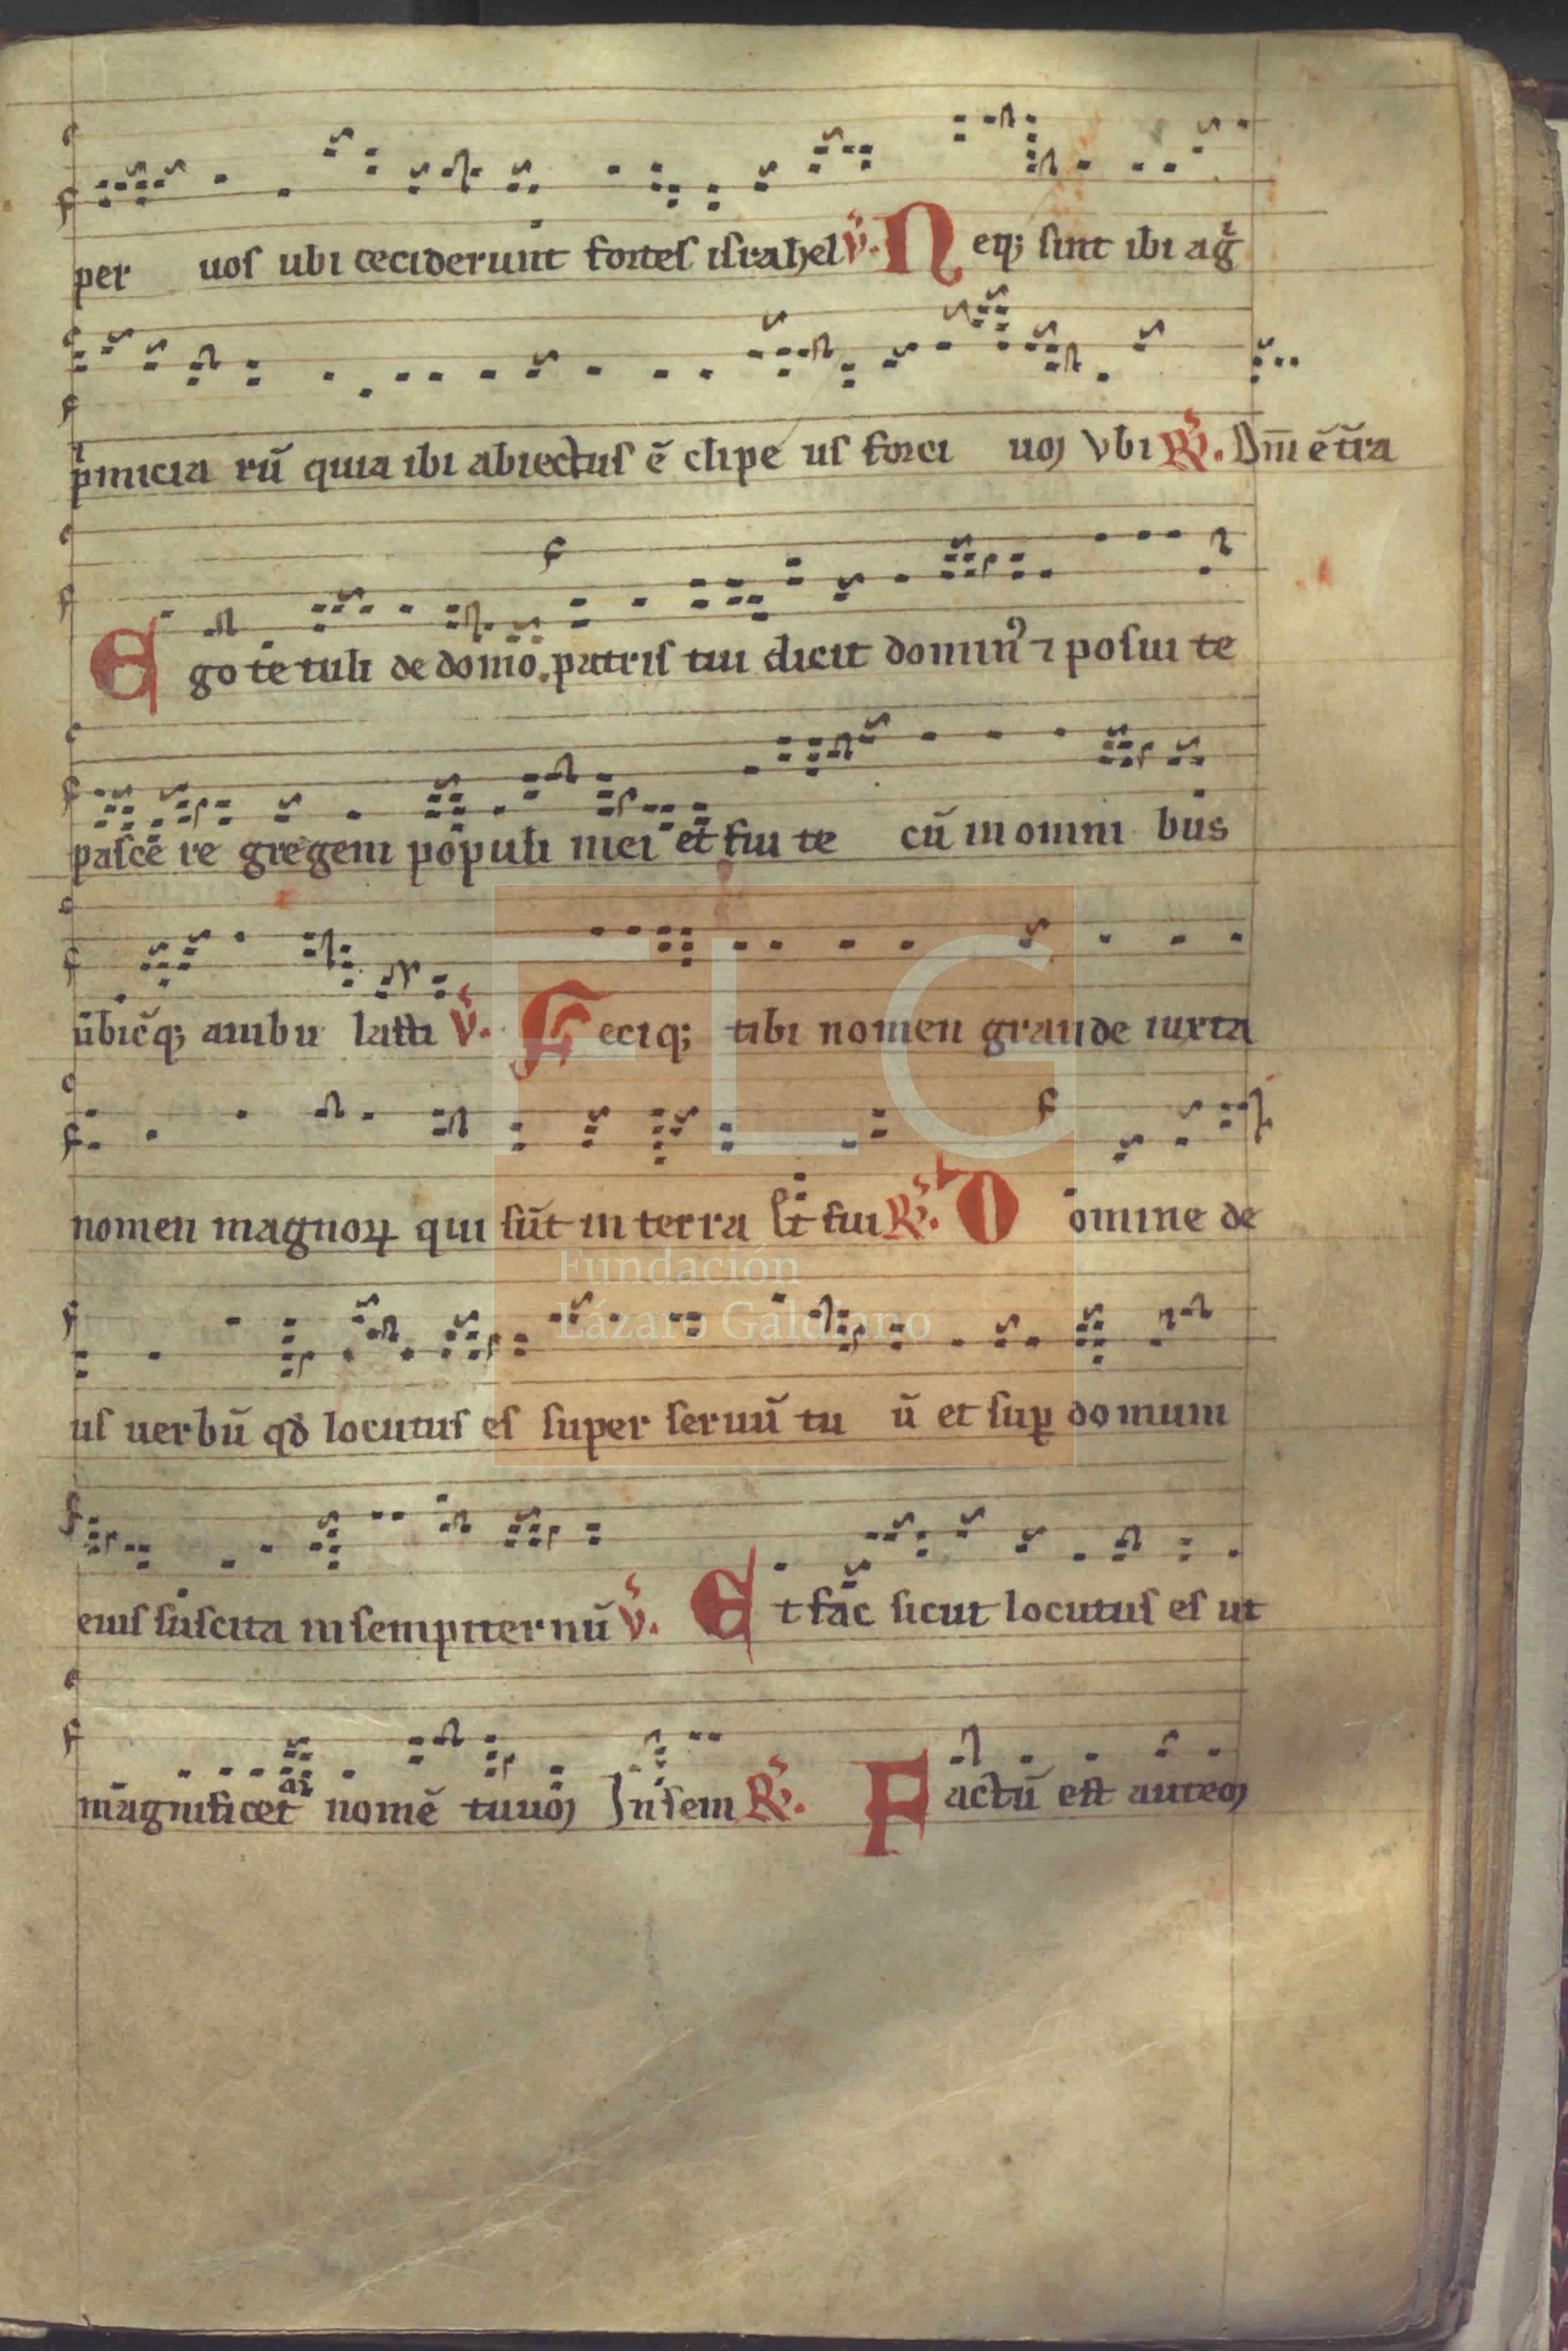 per uos ubi ceciderunt fortes israhel v̄. Neq; sint ibi ag̃
p̃micia rũ quia ibi abiectus ẽ clipe us forci uoȝ Vbi R̃. Dm̃ ẽ tr̃a
Ego te tuli de domo patris tui dicit domin⁹ ⁊ posui te
pasce re gregem populi mei et fui te cũ in omni bus
ubicq; ambu lasti v̄. Feciq; tibi nomen grande iuxta
nomen magnoꝝ qui sũt in terra Et fui R̃. Domine de
us uerbũ qđ locutus es super seruũ tu ũ et suꝑ domum
eius suscita in sempiternũ v̄. Et fac sicut locutus es ut
magnificet nomẽ tuuȝ In sem R̃. Factũ est auteȝ
FLG
Fundación
Lázaro Galdiano